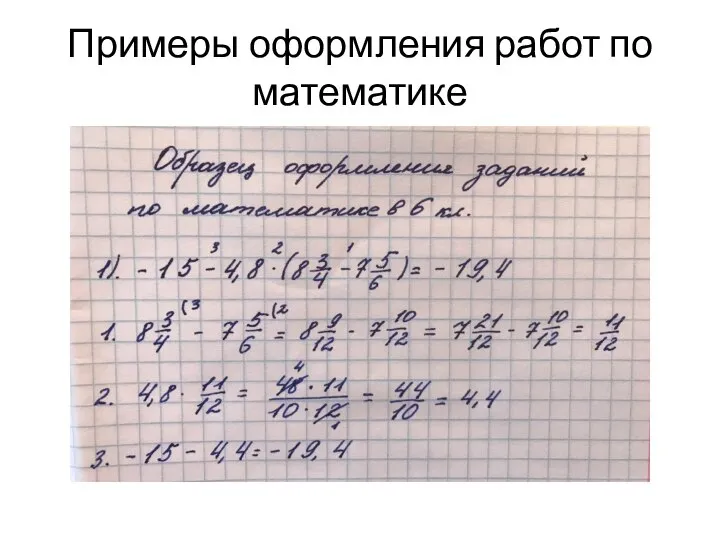 Примеры оформления работ по
математике
Образец оформления заданий
по математике в 6 кл.
3 2 1
1). - 15 - 4,8 · (8 3/4 - 7 5/6) = - 19,4
1. 8 3/4 (3 - 7 5/6 (2 = 8 9/12 - 7 10/12 = 7 21/12 - 7 10/12 = 11/12
2. 4,8 · 11/12 = 4 48 · 11 / 10 · 12 1 = 44/10 = 4,4
3. - 15 - 4,4 = - 19,4